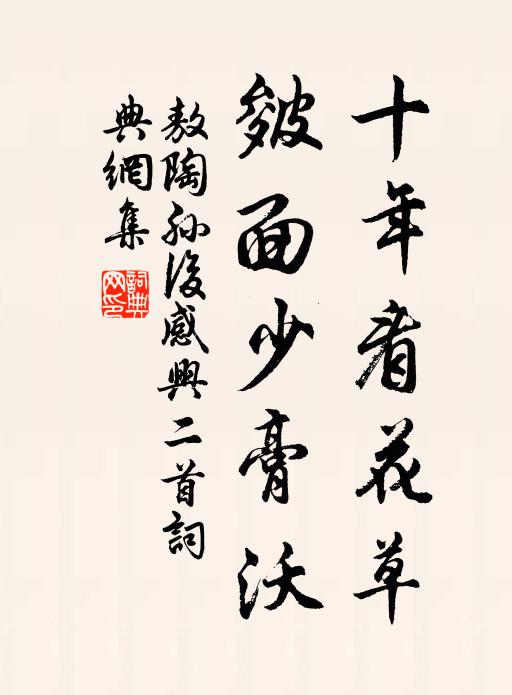 十年看花草
皴面少膏沃
敖陶孫後感興二首詞
典網集
詞典網印